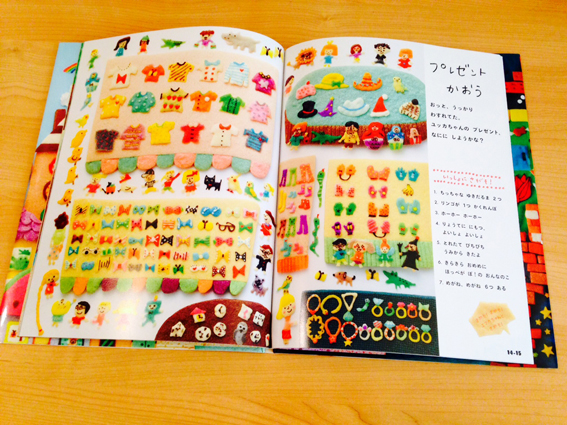 プレゼント
かおう
おっと、うっかり
わすれてた。
ユッカちゃんの プレゼント、
なにに しようかな？
いっしょに さがそう！
1. ちっちゃな ゆきだるま 2つ
2. リンゴが 1つ かくれんぼ
3. ホーホー ホーホー
4. りょうてに にもつ、
よいしょ よいしょ
5. とれたて ぴちぴち
うみから きたよ
6. きらきら おめめに
ほっぺが ぽ！の おんなのこ
7. めがね、めがね 6つ ある
14-15